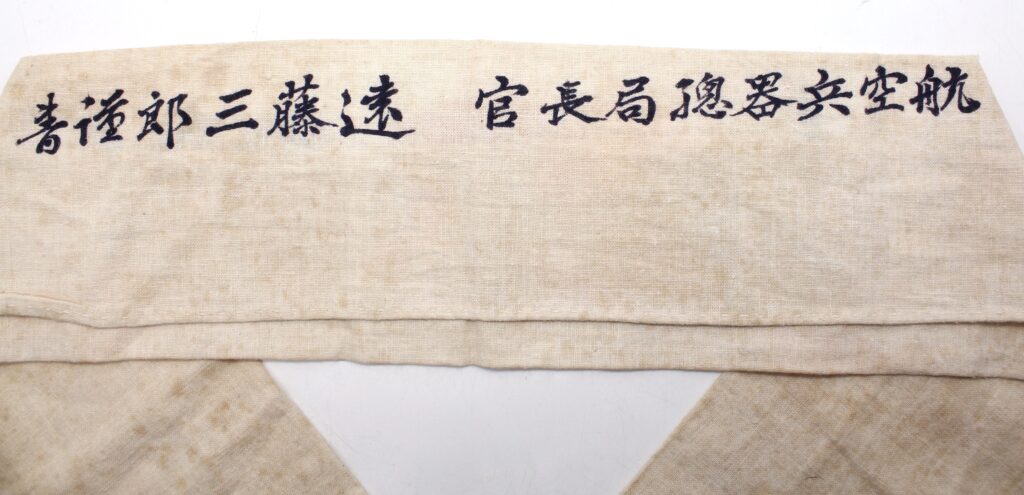 航空兵器總局長官 遠藤三郎謹書